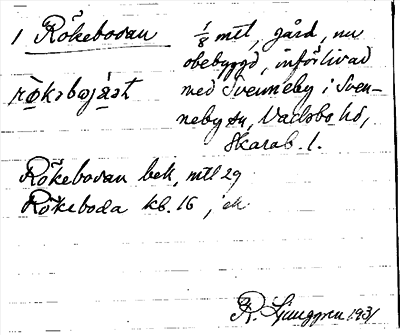 1 Rökebosan 1/8 mtl, gård, nu
obebyggd, införlivad
med Svenneby i Sven-
neby sn, Vadsbo hd,
Skarab. l.
Rökebosan bek, mtl 29
Rökeboda kb. 16, ek
R. Ljunggren 1931